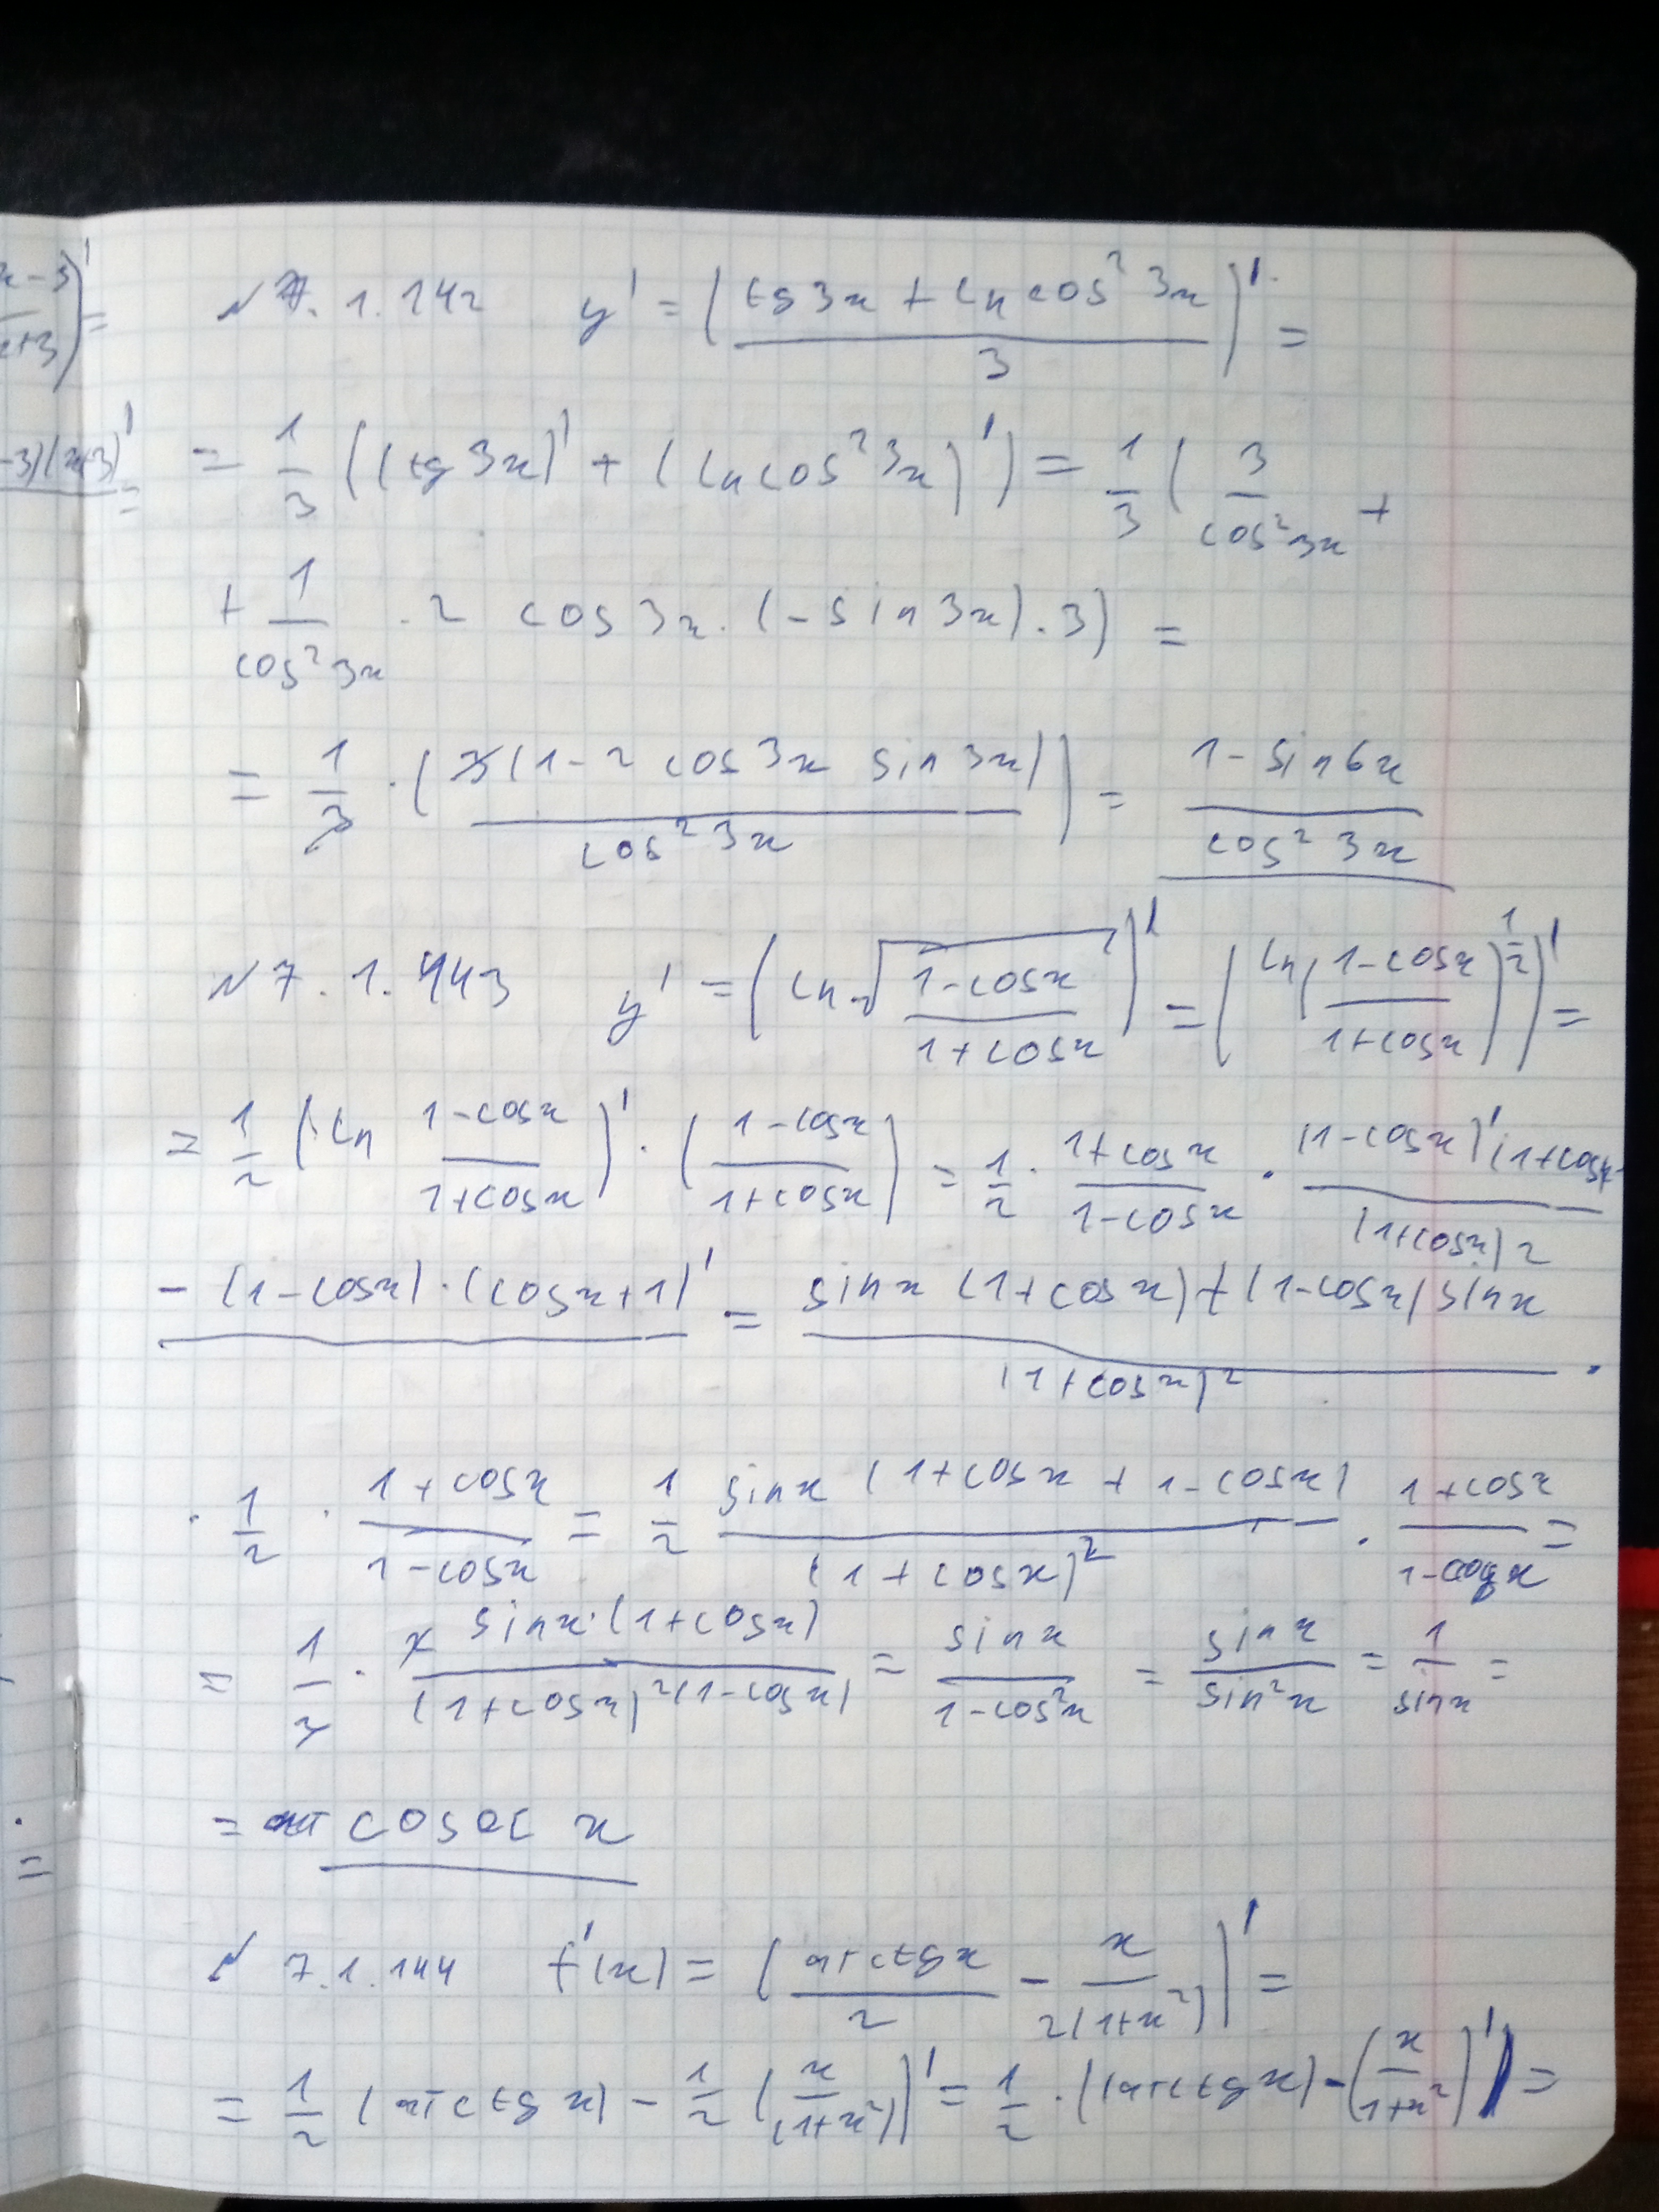 x-3)'
x+3) =
-3)(x+3)'
=
N 7.1.142 y' = ((tg3x + ln cos²3x)/3)' =
= 1/3 ((tg 3x)' + (ln cos²3x)') = 1/3 (3/cos²3x +
+ 1/cos²3x · 2 cos3x · (-sin3x) · 3) =
= 1/3 · (3(1-2 cos3x sin3x)/cos²3x) = (1-sin6x)/cos²3x
N 7.1.143 y' = (ln √((1-cosx)/(1+cosx)))' = (ln((1-cosx)/(1+cosx))^(1/2))' =
= 1/2 (ln (1-cosx)/(1+cosx))' · ((1-cosx)/(1+cosx)) = 1/2 · (1+cosx)/(1-cosx) · (1-cosx)'(1+cosx)/(1+cosx)2
-(1-cosx)·(cosx+1)' = (sinx (1+cosx) + (1-cosx) sinx)/(1+cosx)² ·
· 1/2 · (1+cosx)/(1-cosx) = 1/2 sinx (1+cosx + 1-cosx)/(1+cosx)² · (1+cosx)/(1-cosx) =
= 1/2 · 2 sinx·(1+cosx)/((1+cosx)²(1-cosx)) = sinx/(1-cos²x) = sinx/sin²x = 1/sinx =
= cosec x
N 7.1.144 f'(x) = (arctgx/2 - x/(2(1+x²)))' =
= 1/2 (arctgx) - 1/2 (x/(1+x²))' = 1/2 · ((arctgx) - (x/(1+x²))') =